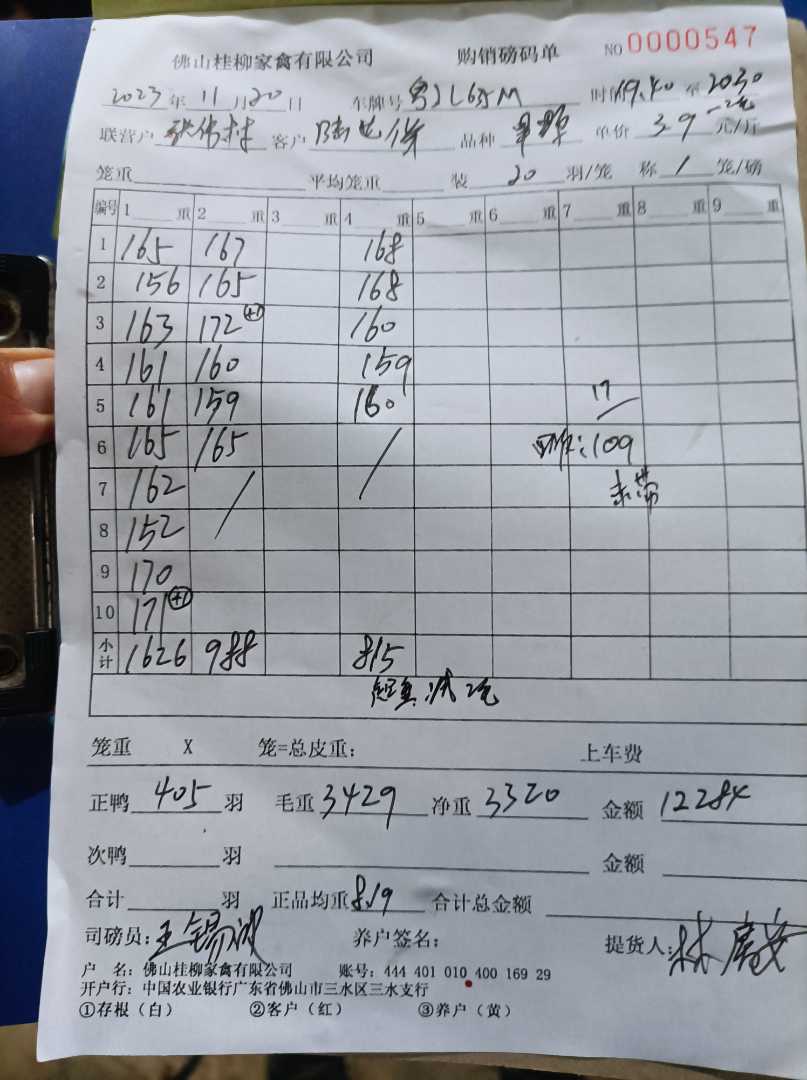 佛山桂柳家禽有限公司 购销磅码单 NO 0000547
2023年11月20日 车牌号 时 19.40 至 2030
联营户 客户 品种 单价 3.9 元/斤
笼重 平均笼重 装 20 羽/笼 称 1 笼/磅
编号 1 重 2 重 3 重 4 重 5 重 6 重 7 重 8 重 9 重
1 165 167 168
2 156 165 168
3 163 172 +1 160
4 161 160 159
5 161 159 160 17
6 165 165 / 109
7 162 / 未带
8 152
9 170
10 171 +1
小计 1626 988 815
减2元
笼重 X 笼=总皮重: 上车费
正鸭 405 羽 毛重 3429 净重 3320 金额 12284
次鸭 羽 金额
合计 羽 正品均重 8.19 合计总金额
司磅员: 养户签名: 提货人: 林
户 名: 佛山桂柳家禽有限公司 账号: 444 401 010 400 169 29
开户行: 中国农业银行广东省佛山市三水区三水支行
①存根(白) ②客户(红) ③养户(黄)